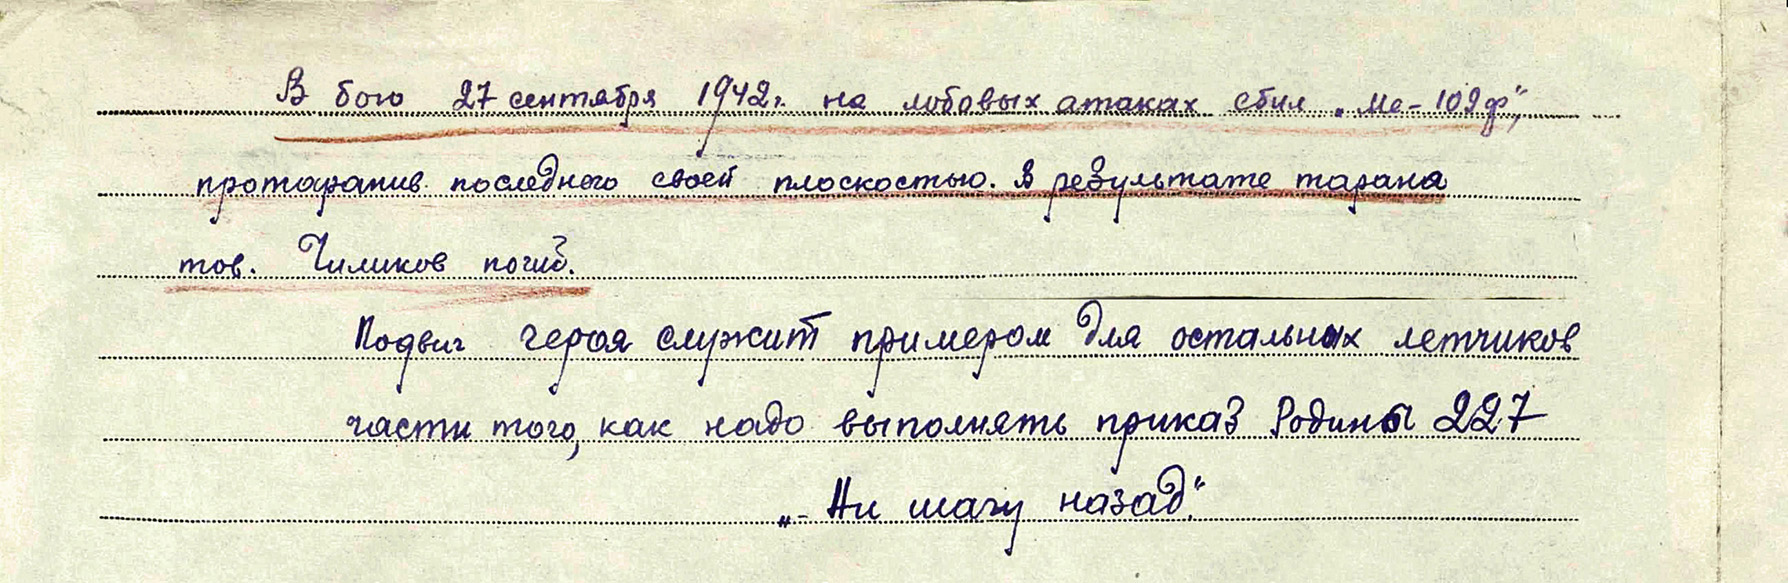 В бою 27 сентября 1942г. на лобовых атаках сбил „Ме-109ф",
протаранив последнего своей плоскостью. В результате тарана
тов. Чиликов погиб.
Подвиг героя служит примером для остальных летчиков
части того, как надо выполнять приказ Родины 227
„- Ни шагу назад".